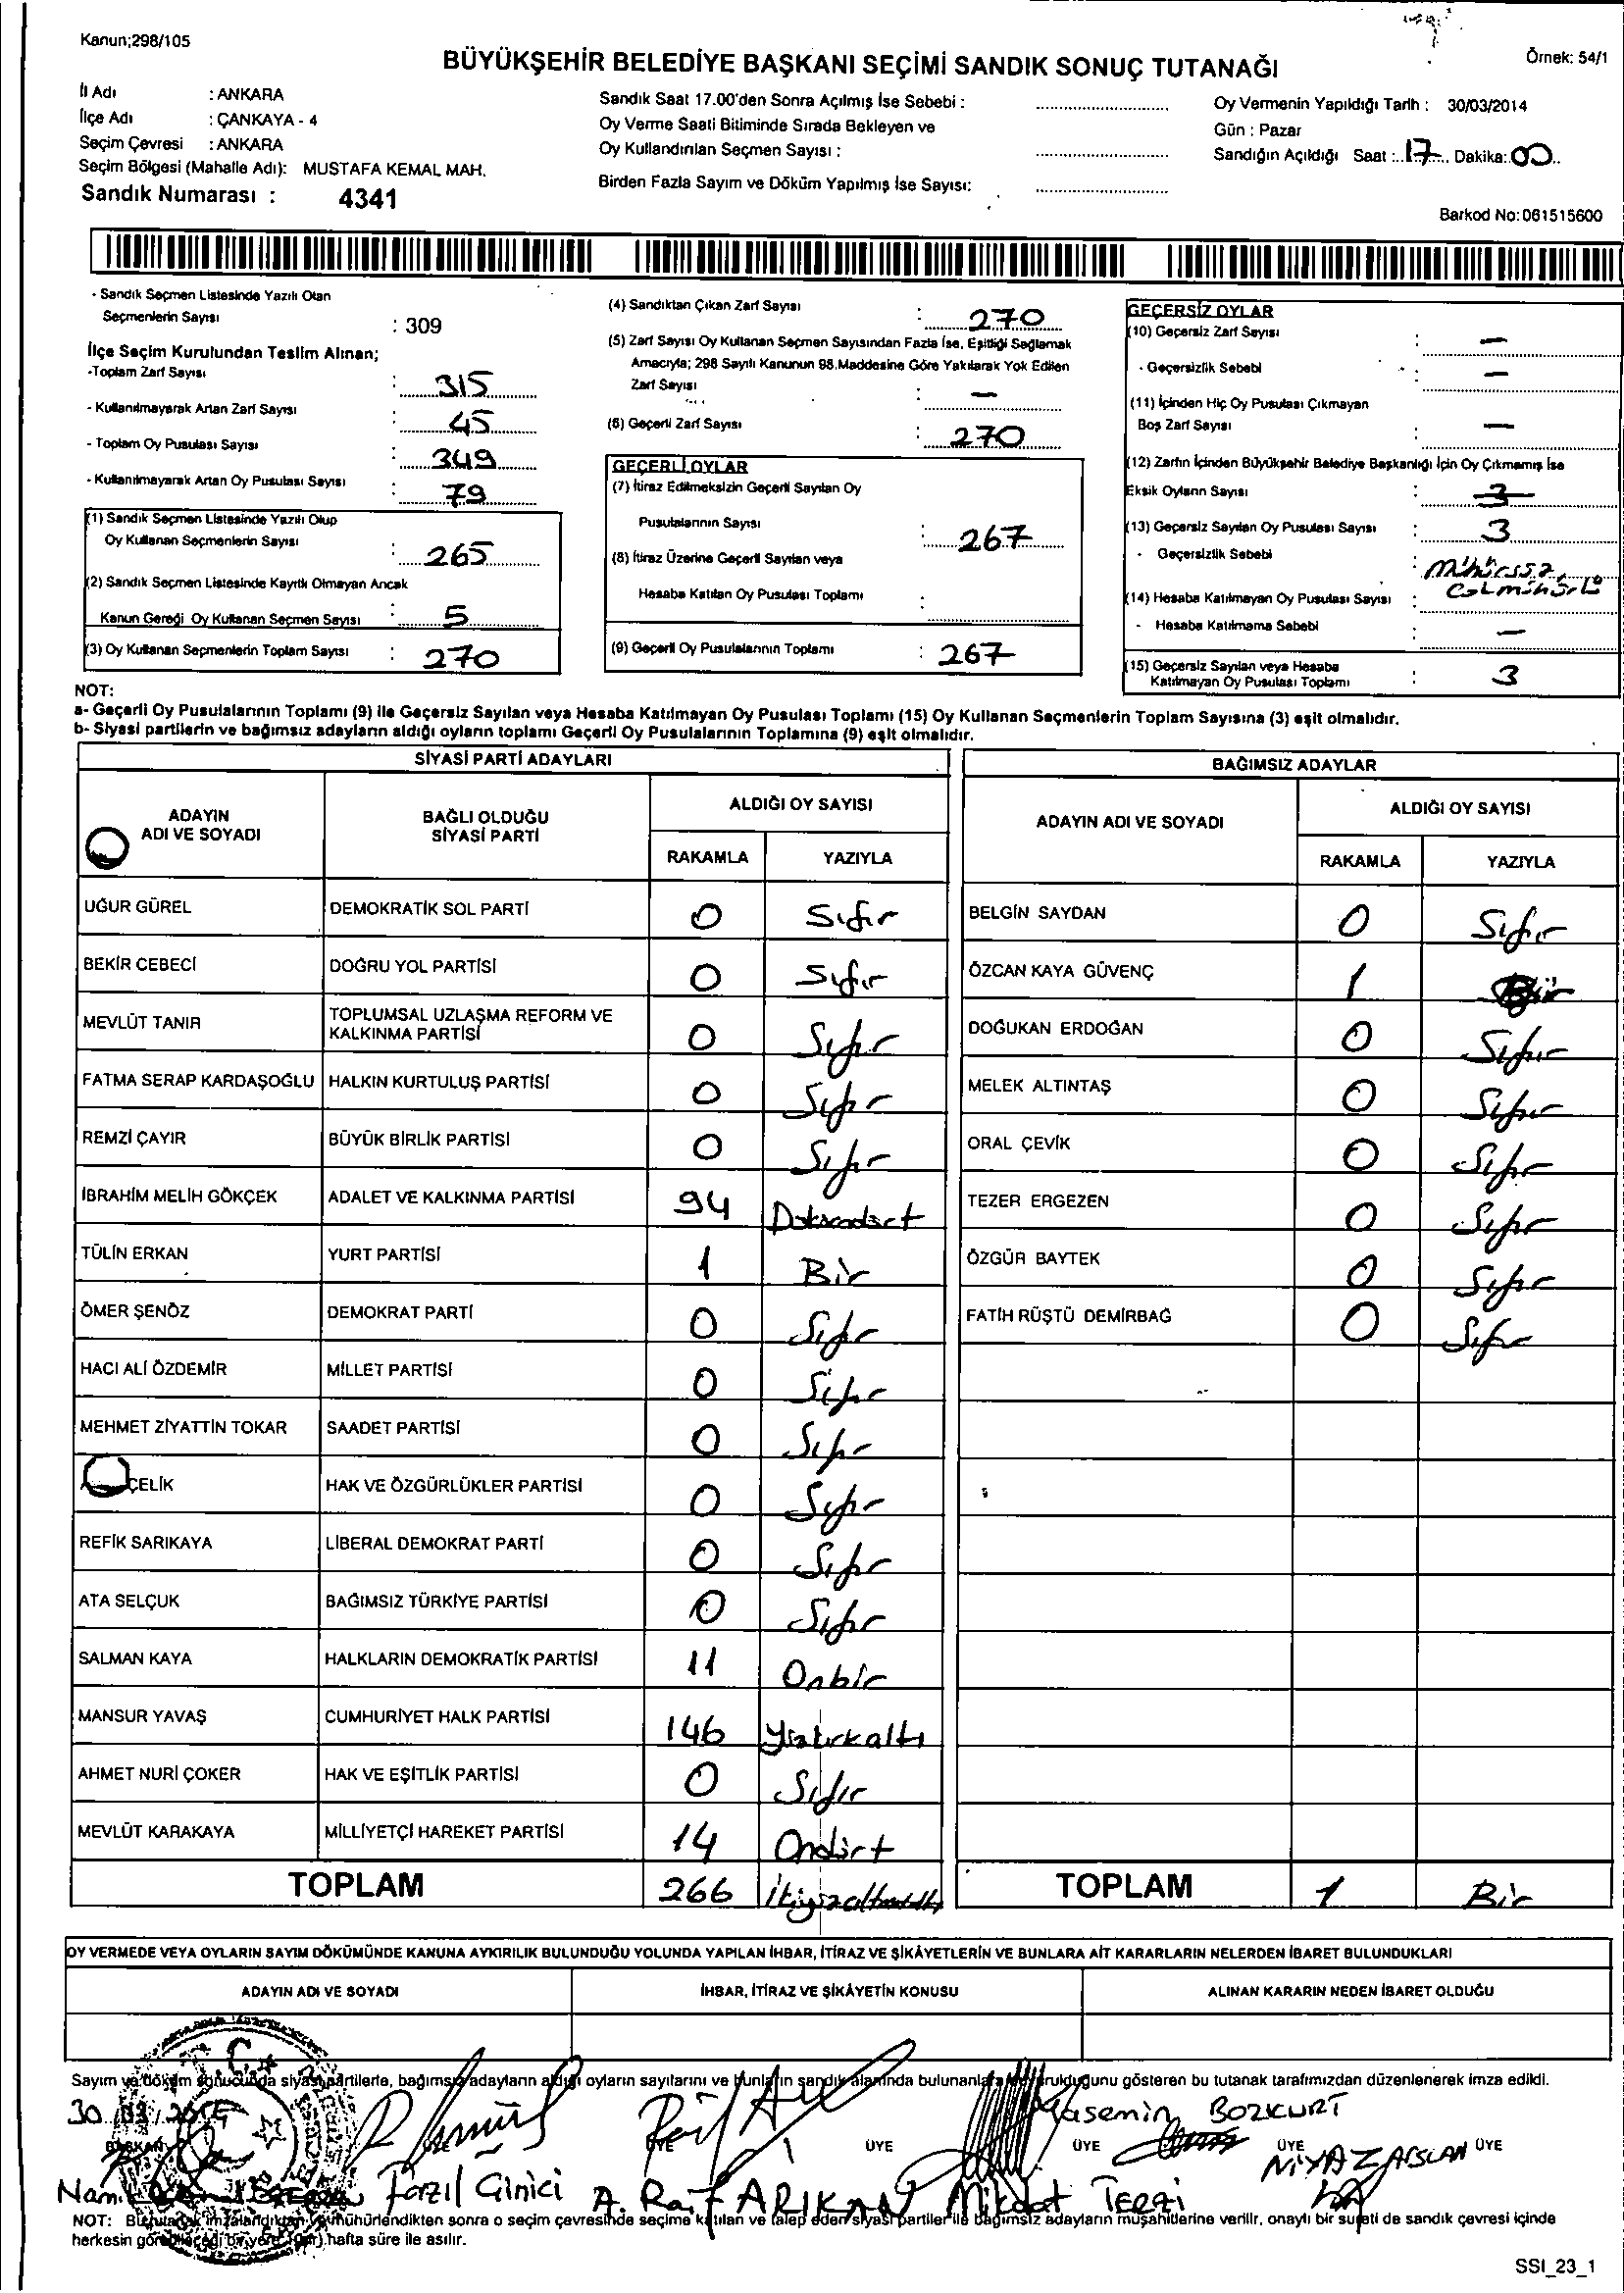 Kanun;298/105
BÜYÜKŞEHİR BELEDİYE BAŞKANI SEÇİMİ SANDIK SONUÇ TUTANAĞI
Örnek: 54/1
İl Adı : ANKARA
İlçe Adı : ÇANKAYA - 4
Seçim Çevresi : ANKARA
Seçim Bölgesi (Mahalle Adı): MUSTAFA KEMAL MAH.
Sandık Numarası : 4341
Sandık Saat 17.00'den Sonra Açılmış İse Sebebi :
Oy Verme Saati Bitiminde Sırada Bekleyen ve
Oy Kullandırılan Seçmen Sayısı :
Birden Fazla Sayım ve Döküm Yapılmış İse Sayısı:
Oy Vermenin Yapıldığı Tarih : 30/03/2014
Gün : Pazar
Sandığın Açıldığı Saat : 17 Dakika: 00
Barkod No: 061515600
- Sandık Seçmen Listesinde Yazılı Olan
Seçmenlerin Sayısı : 309
İlçe Seçim Kurulundan Teslim Alınan;
-Toplam Zarf Sayısı : 315
- Kullanılmayarak Artan Zarf Sayısı : 45
- Toplam Oy Pusulası Sayısı : 349
- Kullanılmayarak Artan Oy Pusulası Sayısı : 79
(1) Sandık Seçmen Listesinde Yazılı Olup
Oy Kullanan Seçmenlerin Sayısı : 265
(2) Sandık Seçmen Listesinde Kayıtlı Olmayan Ancak
Kanun Gereği Oy Kullanan Seçmen Sayısı : 5
(3) Oy Kullanan Seçmenlerin Toplam Sayısı : 270
(4) Sandıktan Çıkan Zarf Sayısı : 270
(5) Zarf Sayısı Oy Kullanan Seçmen Sayısından Fazla İse, Eşitliği Sağlamak
Amacıyla; 298 Sayılı Kanunun 98.Maddesine Göre Yakılarak Yok Edilen
Zarf Sayısı : —
(6) Geçerli Zarf Sayısı : 270
GEÇERLİ OYLAR
(7) İtiraz Edilmeksizin Geçerli Sayılan Oy
Pusulalarının Sayısı : 267
(8) İtiraz Üzerine Geçerli Sayılan veya
Hesaba Katılan Oy Pusulası Toplamı :
(9) Geçerli Oy Pusulalarının Toplamı : 267
GEÇERSİZ OYLAR
(10) Geçersiz Zarf Sayısı : —
- Geçersizlik Sebebi : —
(11) İçinden Hiç Oy Pusulası Çıkmayan
Boş Zarf Sayısı : —
(12) Zarfın İçinden Büyükşehir Belediye Başkanlığı İçin Oy Çıkmamış İse
Eksik Oyların Sayısı : 3
(13) Geçersiz Sayılan Oy Pusulası Sayısı : 3
- Geçersizlik Sebebi :
(14) Hesaba Katılmayan Oy Pusulası Sayısı :
- Hesaba Katılmama Sebebi : —
(15) Geçersiz Sayılan veya Hesaba
Katılmayan Oy Pusulası Toplamı : 3
NOT:
a- Geçerli Oy Pusulalarının Toplamı (9) ile Geçersiz Sayılan veya Hesaba Katılmayan Oy Pusulası Toplamı (15) Oy Kullanan Seçmenlerin Toplam Sayısına (3) eşit olmalıdır.
b- Siyasi partilerin ve bağımsız adayların aldığı oyların toplamı Geçerli Oy Pusulalarının Toplamına (9) eşit olmalıdır.
SİYASİ PARTİ ADAYLARI
ADAYIN ADI VE SOYADI
BAĞLI OLDUĞU SİYASİ PARTİ
ALDIĞI OY SAYISI
RAKAMLA YAZIYLA
UĞUR GÜREL DEMOKRATİK SOL PARTİ 0 Sıfır
BEKİR CEBECİ DOĞRU YOL PARTİSİ 0 Sıfır
MEVLÜT TANIR TOPLUMSAL UZLAŞMA REFORM VE KALKINMA PARTİSİ 0 Sıfır
FATMA SERAP KARDAŞOĞLU HALKIN KURTULUŞ PARTİSİ 0 Sıfır
REMZİ ÇAYIR BÜYÜK BİRLİK PARTİSİ 0 Sıfır
İBRAHİM MELİH GÖKÇEK ADALET VE KALKINMA PARTİSİ 94 Doksandört
TÜLİN ERKAN YURT PARTİSİ 1 Bir
ÖMER ŞENÖZ DEMOKRAT PARTİ 0 Sıfır
HACI ALİ ÖZDEMİR MİLLET PARTİSİ 0 Sıfır
MEHMET ZİYATTİN TOKAR SAADET PARTİSİ 0 Sıfır
ÇELİK HAK VE ÖZGÜRLÜKLER PARTİSİ 0 Sıfır
REFİK SARIKAYA LİBERAL DEMOKRAT PARTİ 0 Sıfır
ATA SELÇUK BAĞIMSIZ TÜRKİYE PARTİSİ 0 Sıfır
SALMAN KAYA HALKLARIN DEMOKRATİK PARTİSİ 11 Onbir
MANSUR YAVAŞ CUMHURİYET HALK PARTİSİ 146 Yüzkırkaltı
AHMET NURİ ÇOKER HAK VE EŞİTLİK PARTİSİ 0 Sıfır
MEVLÜT KARAKAYA MİLLİYETÇİ HAREKET PARTİSİ 14 Ondört
TOPLAM 266 İkiyüzaltmışaltı
BAĞIMSIZ ADAYLAR
ADAYIN ADI VE SOYADI
ALDIĞI OY SAYISI
RAKAMLA YAZIYLA
BELGİN SAYDAN 0 Sıfır
ÖZCAN KAYA GÜVENÇ 1 Bir
DOĞUKAN ERDOĞAN 0 Sıfır
MELEK ALTINTAŞ 0 Sıfır
ORAL ÇEVİK 0 Sıfır
TEZER ERGEZEN 0 Sıfır
ÖZGÜR BAYTEK 0 Sıfır
FATİH RÜŞTÜ DEMİRBAĞ 0 Sıfır
TOPLAM 1 Bir
OY VERMEDE VEYA OYLARIN SAYIM DÖKÜMÜNDE KANUNA AYKIRILIK BULUNDUĞU YOLUNDA YAPILAN İHBAR, İTİRAZ VE ŞİKÂYETLERİN VE BUNLARA AİT KARARLARIN NELERDEN İBARET BULUNDUKLARI
ADAYIN ADI VE SOYADI
İHBAR, İTİRAZ VE ŞİKÂYETİN KONUSU
ALINAN KARARIN NEDEN İBARET OLDUĞU
Sayım ve döküm sonucunda siyasi partilerle, bağımsız adayların aldığı oyların sayılarını ve bunların sandık alanında bulunanlara duyurulduğunu gösteren bu tutanak tarafımızdan düzenlenerek imza edildi.
30 03/2014
Yasemin BOZKURT
BAŞKAN ÜYE ÜYE ÜYE ÜYE ÜYE ÜYE
NİYAZ ARSLAN
Fazıl Ginici A. Raif ARIKAN Mikdat TERZİ
NOT: Bu tutanak imzalandıktan ve mühürlendikten sonra o seçim çevresinde seçime katılan ve talep eden siyasi partiler ile bağımsız adayların müşahitlerine verilir, onaylı bir sureti de sandık çevresi içinde
herkesin görebileceği bir yere 1(bir) hafta süre ile asılır.
SSI_23_1